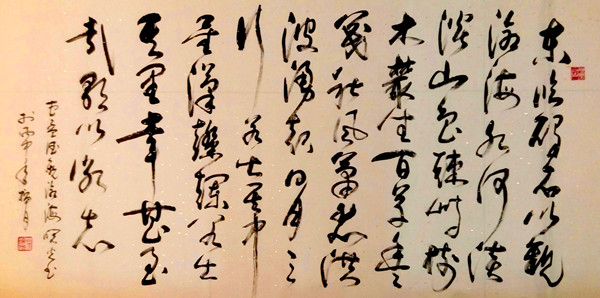 東臨碣石以觀
滄海水何澹
澹山島竦峙樹
木叢生百草豐
茂秋風蕭瑟洪
波湧起日月之
行若出其中
星漢燦爛若出
其里幸甚至
哉歌以詠志
孟德觀滄海
丙申年 月